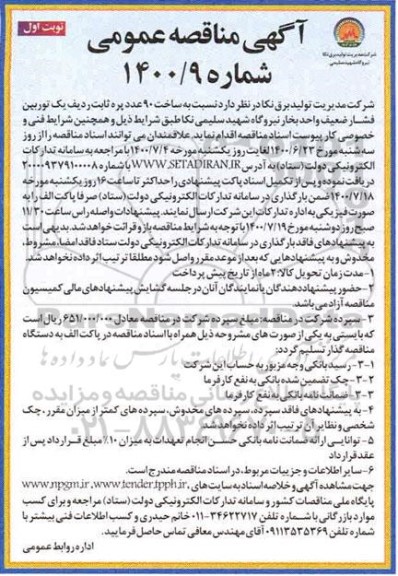 نوبت اول
شرکت مدیریت تولید برق نکا
نیروگاه شهید سلیمی
آگهی مناقصه عمومی
شماره ۱۴۰۰/۹
شرکت مدیریت تولید برق نکا در نظر دارد نسبت به ساخت ۹۰ عدد پره ثابت ردیف یک توربین
فشار ضعیف واحد بخار نیروگاه شهید سلیمی نکا طبق شرایط ذیل و همچنین شرایط فنی و
خصوصی کار پیوست اسناد مناقصه اقدام نماید. علاقمندان می توانند اسناد مناقصه را از روز
سه شنبه مورخ ۱۴۰۰/۶/۲۳ لغایت روز یکشنبه مورخه ۱۴۰۰/۷/۴ با مراجعه به سامانه تدارکات
الکترونیکی دولت (ستاد) به آدرس WWW.SETADIRAN.IR با شماره ۲۰۰۰۰۹۳۷۹۱۰۰۰۰۸
دریافت نموده و پس از تکمیل اسناد پاکت پیشنهادی را حداکثر تا ساعت ۱۶ روز یکشنبه مورخ
۱۴۰۰/۷/۱۸ ضمن بارگذاری در سامانه تدارکات الکترونیکی دولت (ستاد) صرفا پاکت الف را به
صورت فیزیکی به اداره تدارکات این شرکت ارسال نمایند. پیشنهادات واصله راس ساعت ۱۱/۳۰
صبح روز دوشنبه مورخ ۱۴۰۰/۷/۱۹ با توجه به شرایط مناقصه باز و قرائت خواهد شد. بدیهی است
به پیشنهادهای فاقد بارگذاری در سامانه تدارکات الکترونیکی دولت ستاد فاقد امضا، مشروط،
مخدوش و به پیشنهادهایی که بعد از موعد مقرر واصل شود مطلقا ترتیب اثر داده نخواهد شد.
۱- مدت زمان تحویل کالا: ۲ ماه از تاریخ پیش پرداخت
۲- حضور پیشنهاددهندگان یا نمایندگان آنان در جلسه گشایش پیشنهادهای مالی کمیسیون
مناقصه آزاد می باشد.
۳- سپرده شرکت در مناقصه: مبلغ سپرده شرکت در مناقصه معادل ۶۵۱/۰۰۰/۰۰۰ ریال است
که بایستی به یکی از صورت های مشروحه ذیل همراه با اسناد مناقصه در پاکت الف به دستگاه
مناقصه گذار تسلیم گردد:
۳-۱- رسید بانکی وجه مزبور به حساب این شرکت
۳-۲- چک تضمین شده بانکی به نفع کارفرما
۳-۳- ضمانت نامه بانکی به نفع کارفرما
۴- به پیشنهادهای فاقد سپرده، سپرده های مخدوش، سپرده های کمتر از میزان مقرر، چک
شخصی و نظایر آن ترتیب اثر داده نخواهد شد
۵- توانایی ارائه ضمانت نامه بانکی حسن انجام تعهدات به میزان ۱۰٪ مبلغ قرارداد پس از
عقد قرارداد
۶- سایر اطلاعات و جزییات مربوط، در اسناد مناقصه مندرج است.
جهت مشاهده آگهی و خلاصه اسناد به سایت های www.npgm.ir, www.tender.tpph.ir,
پایگاه ملی مناقصات کشور و سامانه تدارکات الکترونیکی دولت (ستاد) مراجعه و برای کسب
موارد بازرگانی با شماره تلفن ۳۴۶۲۲۷۱۷-۰۱۱ خانم حیدری و کسب اطلاعات فنی بیشتر با
شماره تلفن ۰۹۱۱۳۵۳۵۳۶۹ آقای مهندس معافی تماس حاصل فرمایید.
اداره روابط عمومی